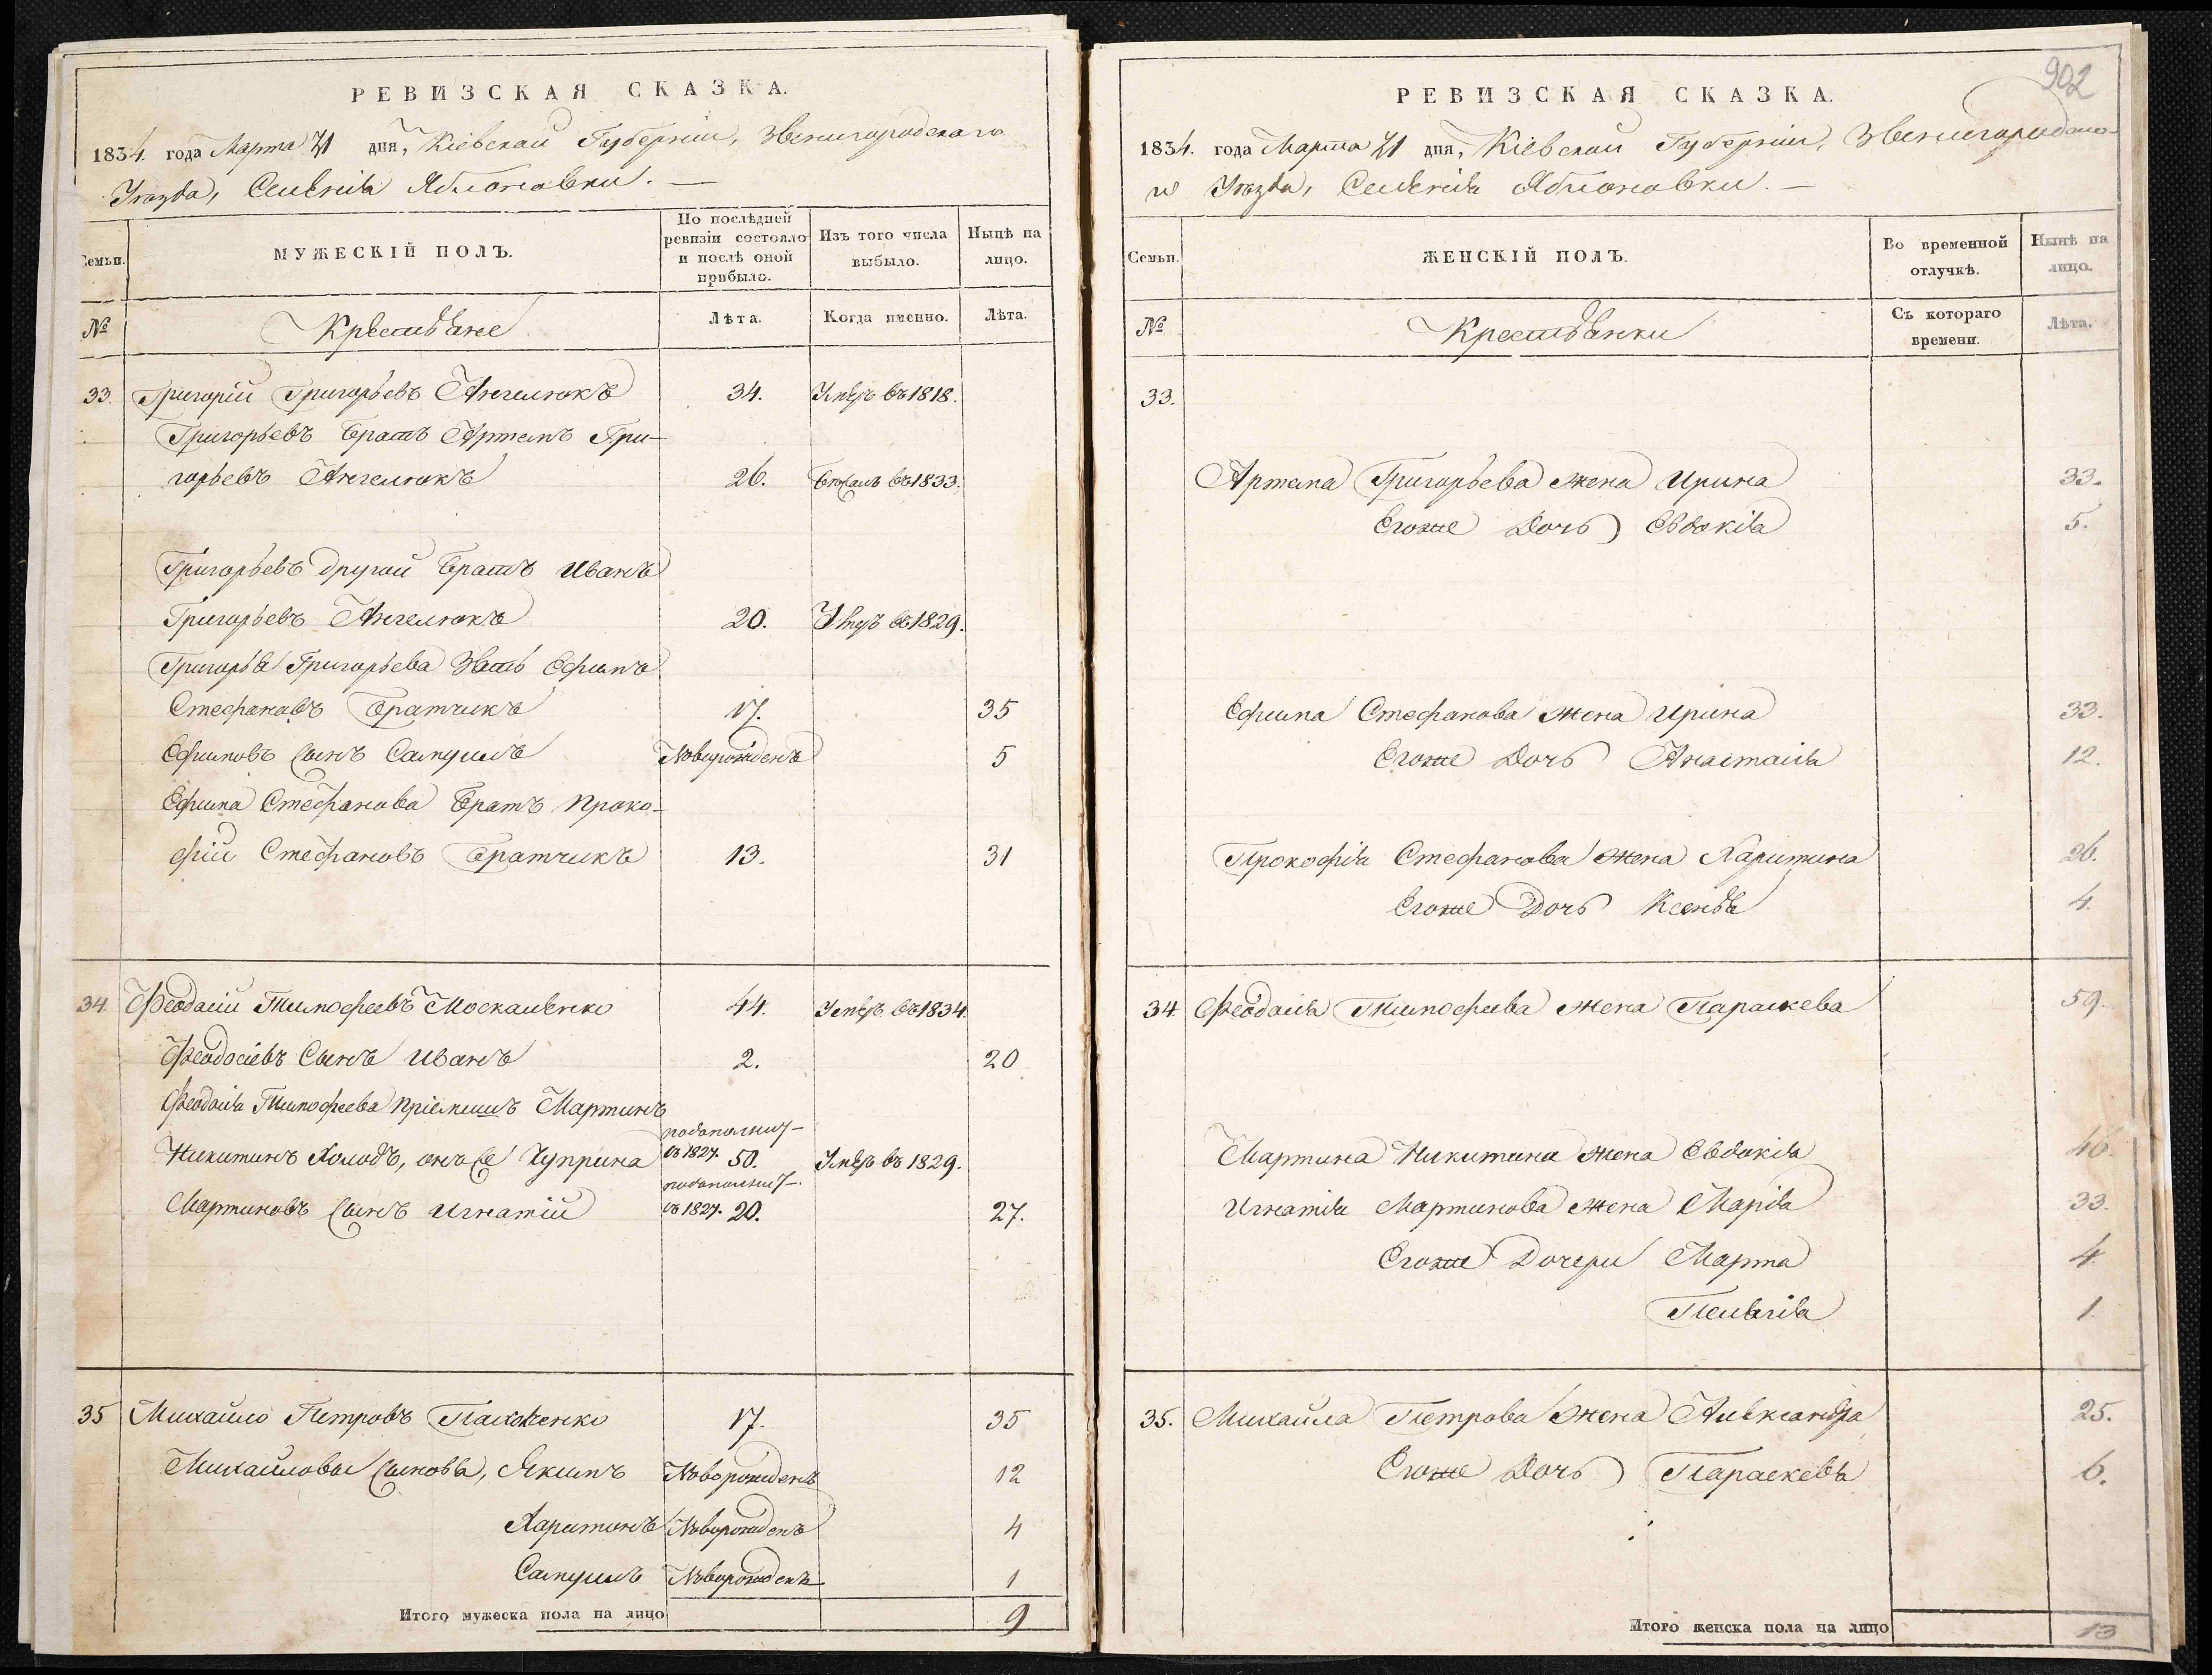 РЕВИЗСКАЯ СКАЗКА.
1834. года Марта 21 дня, Кіевской Губерніи, Звенигородскаго
Уѣзда, Селенія Яблоновки. —
Семьи.
МУЖЕСКІЙ ПОЛЪ.
По послѣдней ревизіи состояло и послѣ оной прибыло.
Изъ того числа выбыло.
Нынѣ на лицо.
№
Крестьяне
Лѣта.
Когда именно.
Лѣта.
33. Григорій Григорьевъ Ангелюкъ 34. Умеръ въ 1818.
Григорьевъ братъ Артемъ Гри-
горьевъ Ангелюкъ 26. бѣжалъ въ 1833.
Григорьевъ другой братъ Иванъ
Григорьевъ Ангелюкъ 20. въ 1829.
Григорья Григорьева Зять Ефимъ
Стефановъ Братчикъ 17. 35
Ефимовъ сынъ Самуилъ Новорожденъ 5
Ефима Стефанова братъ Проко-
фій Стефановъ Братчикъ 13. 31
34 Феодосій Тимофеевъ Москаленко 44. Умеръ въ 1834.
Феодосіевъ Сынъ Иванъ 2. 20
Феодосія Тимофеева пріемышъ Мартинъ
Никитинъ Холодъ, онъ же Чуприна въ 1827. 50. Умеръ въ 1829.
Мартиновъ сынъ Игнатій въ 1827. 20. 27.
35 Михайло Петровъ 17. 35
Михайловы сыновья, Якимъ Новорожденъ 12
Харитонъ Новорожденъ 4
Самуилъ Новорожденъ 1
Итого мужеска пола на лицо 9
902
РЕВИЗСКАЯ СКАЗКА.
1834. года Марта 21 дня, Кіевской Губерніи, Звенигородска-
го Уѣзда, Селенія Яблоновки. —
Семьи.
ЖЕНСКІЙ ПОЛЪ.
Во временной отлучкѣ.
Нынѣ на лицо.
№
Крестьянки
Съ котораго времени.
Лѣта.
33.
Артема Григорьева жена Ирина 33.
Егоже Дочь Евдокія 5.
Ефима Стефанова жена Ирина 33.
Егоже Дочь Анастасія 12.
Прокофія Стефанова жена Харитина 26.
Егоже Дочь Ксенья 4.
34. Феодосія Тимофеева жена Параскева 59.
Мартина Никитина жена Евдокія 46.
Игнатія Мартинова жена Марія 33.
Егоже Дочери Марта 4
Пелагія 1.
35. Михайла Петрова жена Александра 25.
Егоже Дочь Параскевья 6.
Итого женска пола на лицо 13